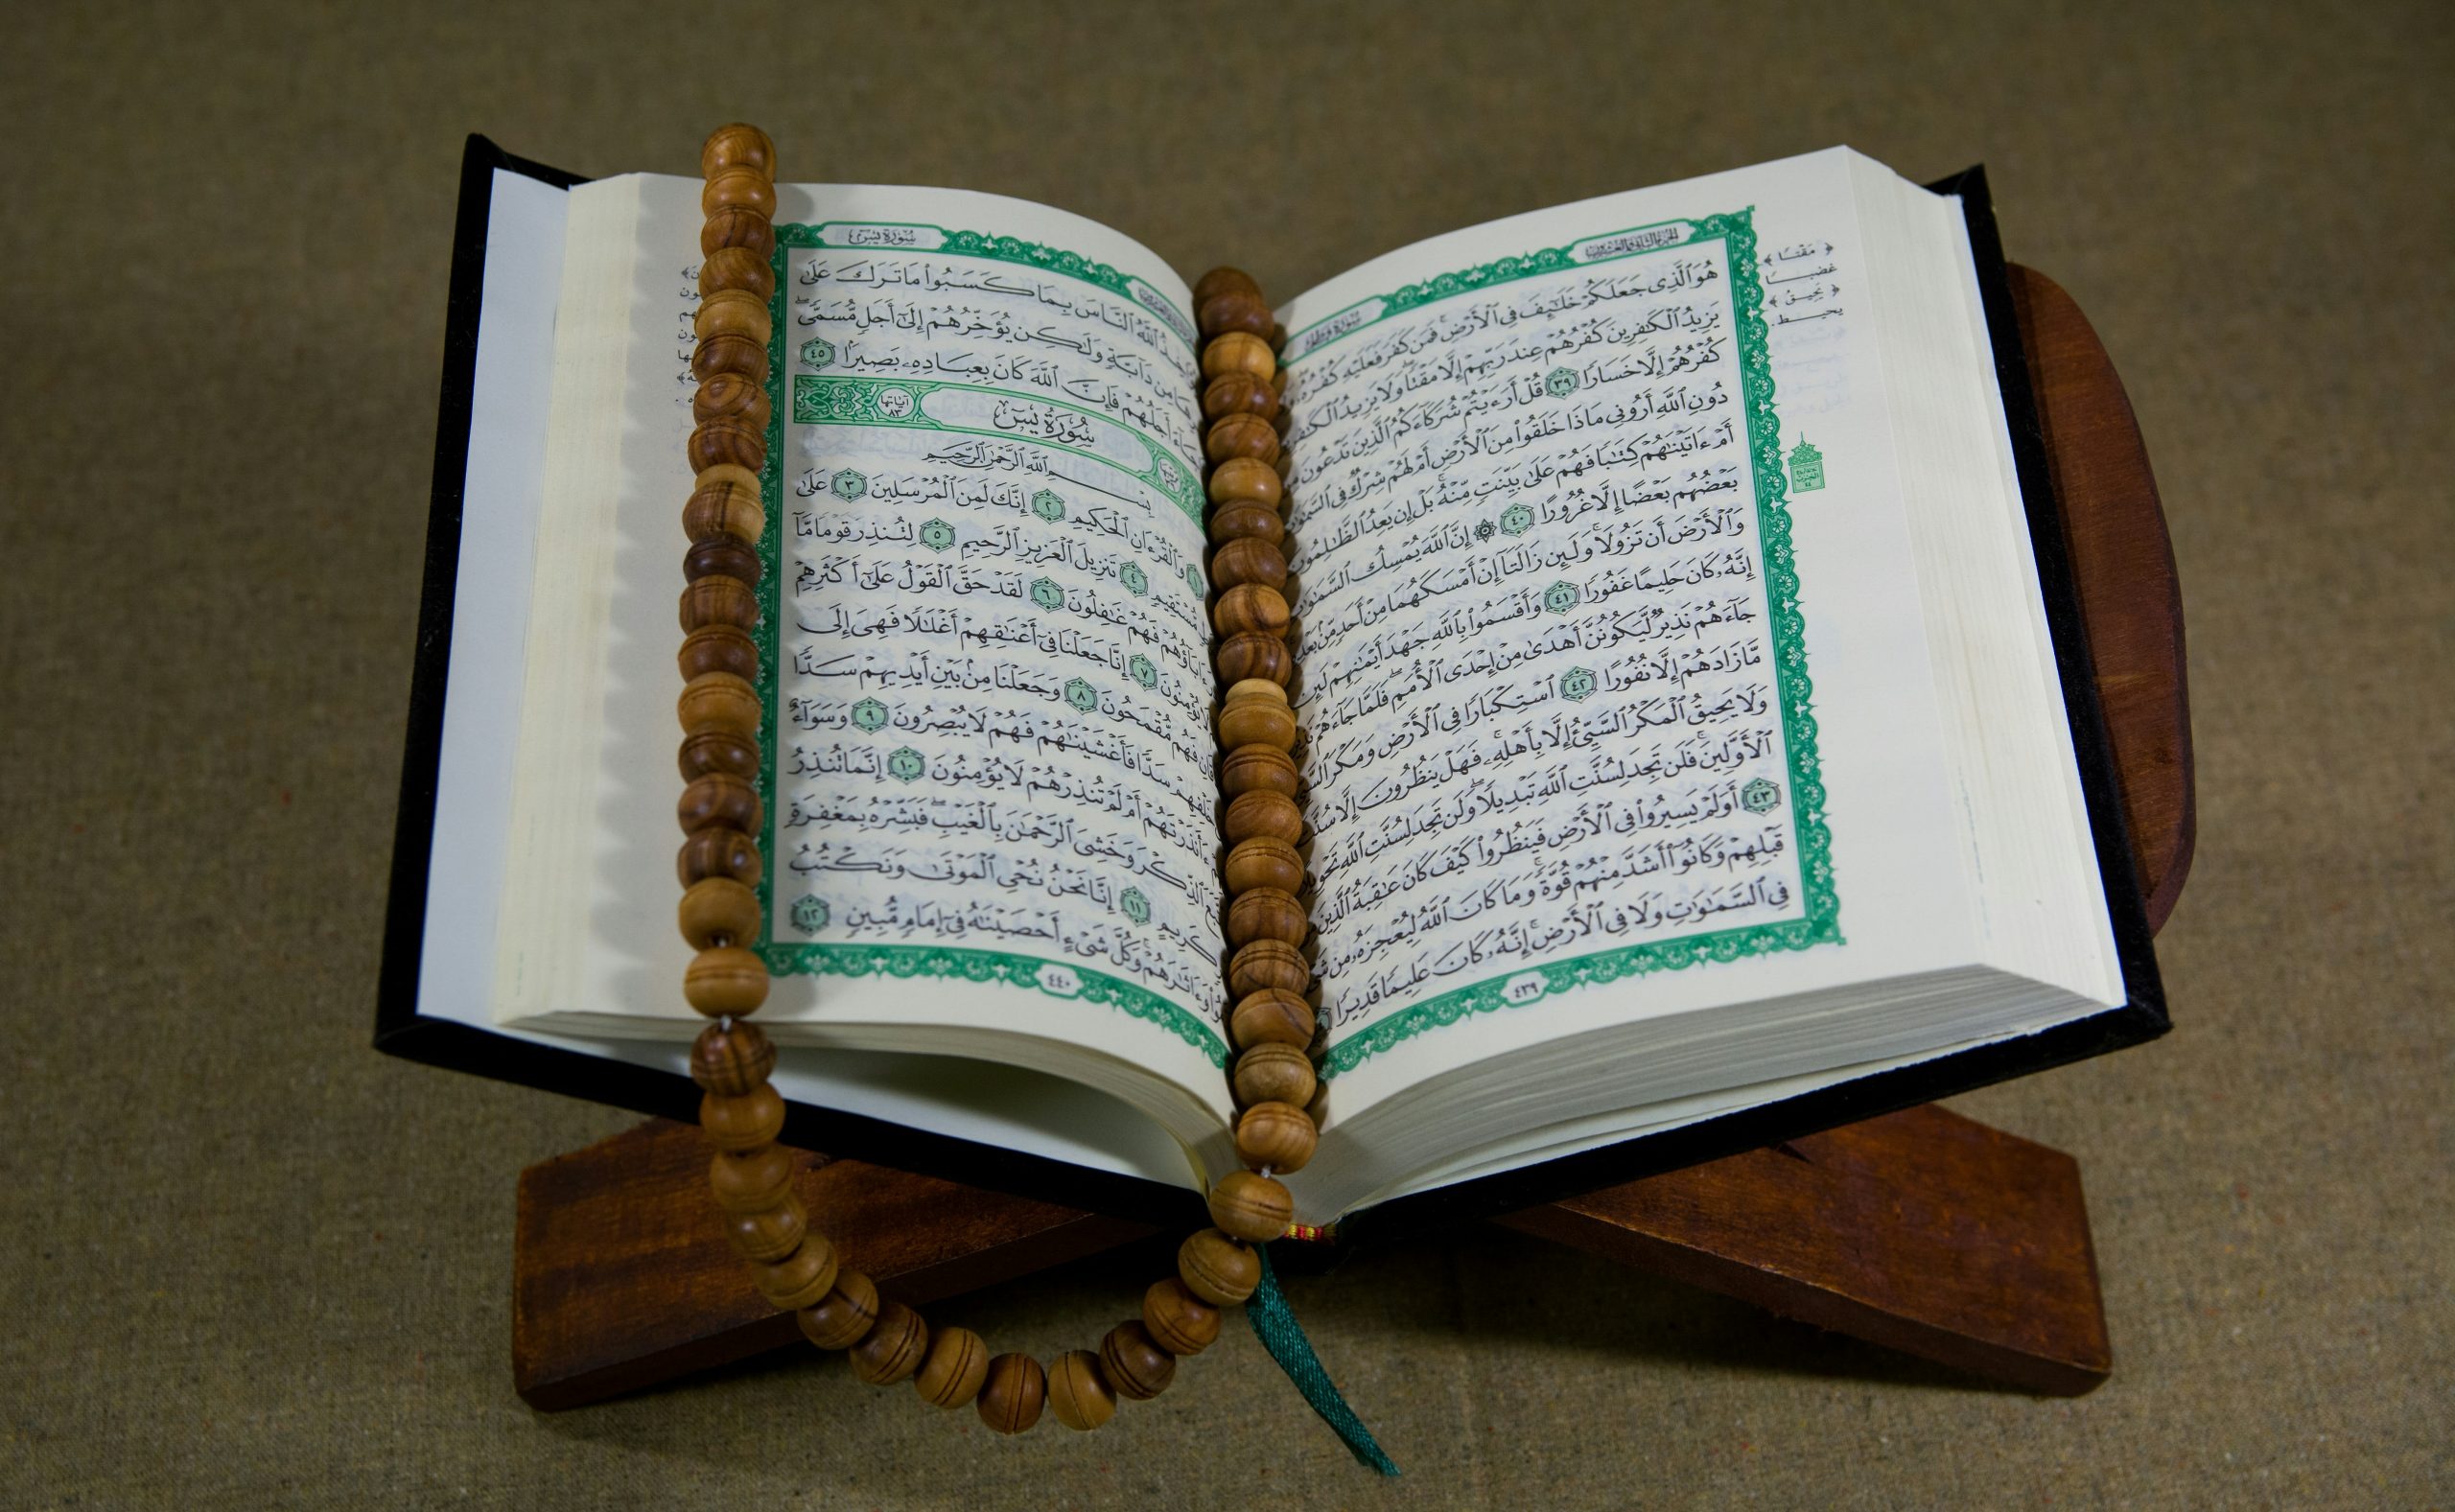 الجزء الثاني والعشرون
سُورَةُ فَاطِرٍ
هُوَ ٱلَّذِى جَعَلَكُمْ خَلَٰٓئِفَ فِى ٱلْأَرْضِ ۚ فَمَن كَفَرَ فَعَلَيْهِ كُفْرُهُۥ
يَزِيدُ ٱلْكَٰفِرِينَ كُفْرُهُمْ عِندَ رَبِّهِمْ إِلَّا مَقْتًا ۖ وَلَا يَزِيدُ
كُفْرُهُمْ إِلَّا خَسَارًا ٣٩ قُلْ أَرَءَيْتُمْ شُرَكَآءَكُمُ ٱلَّذِينَ تَدْعُونَ
دُونِ ٱللَّهِ أَرُونِى مَاذَا خَلَقُوا۟ مِنَ ٱلْأَرْضِ أَمْ لَهُمْ شِرْكٌ فِى
أَمْ ءَاتَيْنَٰهُمْ كِتَٰبًا فَهُمْ عَلَىٰ بَيِّنَتٍ مِّنْهُ ۚ بَلْ إِن يَعِدُ ٱلظَّٰلِمُونَ
بَعْضُهُم بَعْضًا إِلَّا غُرُورًا ٤٠ ۞ إِنَّ ٱللَّهَ يُمْسِكُ ٱلسَّمَٰوَٰتِ
وَٱلْأَرْضَ أَن تَزُولَا ۚ وَلَئِن زَالَتَآ إِنْ أَمْسَكَهُمَا مِنْ أَحَدٍ مِّنۢ
إِنَّهُۥ كَانَ حَلِيمًا غَفُورًا ٤١ وَأَقْسَمُوا۟ بِٱللَّهِ جَهْدَ أَيْمَٰنِهِمْ لَئِن
جَآءَهُمْ نَذِيرٌ لَّيَكُونُنَّ أَهْدَىٰ مِنْ إِحْدَى ٱلْأُمَمِ ۖ فَلَمَّا جَآءَهُمْ
مَّا زَادَهُمْ إِلَّا نُفُورًا ٤٢ ٱسْتِكْبَارًا فِى ٱلْأَرْضِ وَمَكْرَ
وَلَا يَحِيقُ ٱلْمَكْرُ ٱلسَّيِّئُ إِلَّا بِأَهْلِهِۦ ۚ فَهَلْ يَنظُرُونَ إِلَّا
ٱلْأَوَّلِينَ ۚ فَلَن تَجِدَ لِسُنَّتِ ٱللَّهِ تَبْدِيلًا ۖ وَلَن تَجِدَ لِسُنَّتِ ٱللَّهِ
٤٣ أَوَلَمْ يَسِيرُوا۟ فِى ٱلْأَرْضِ فَيَنظُرُوا۟ كَيْفَ كَانَ عَٰقِبَةُ ٱلَّذِينَ
قَبْلِهِمْ وَكَانُوٓا۟ أَشَدَّ مِنْهُمْ قُوَّةً ۚ وَمَا كَانَ ٱللَّهُ لِيُعْجِزَهُۥ مِن
فِى ٱلسَّمَٰوَٰتِ وَلَا فِى ٱلْأَرْضِ ۚ إِنَّهُۥ كَانَ عَلِيمًا قَدِيرًا
﴿ مَقْتًا ﴾
غضبا
﴿ يَحِيقُ ﴾
يحيط.
٤٣٩
سُورَةُ يسٓ
ٱللَّهُ ٱلنَّاسَ بِمَا كَسَبُوا۟ مَا تَرَكَ عَلَىٰ
مِن دَآبَّةٍ وَلَٰكِن يُؤَخِّرُهُمْ إِلَىٰٓ أَجَلٍ مُّسَمًّى ۖ
جَآءَ أَجَلُهُمْ فَإِنَّ ٱللَّهَ كَانَ بِعِبَادِهِۦ بَصِيرًۢا ٤٥
سُورَةُ يسٓ
آيَاتُهَا
٨٣
بِسْمِ ٱللَّهِ ٱلرَّحْمَٰنِ ٱلرَّحِيمِ
١ وَٱلْقُرْءَانِ ٱلْحَكِيمِ ٢ إِنَّكَ لَمِنَ ٱلْمُرْسَلِينَ ٣ عَلَىٰ
مُّسْتَقِيمٍ ٤ تَنزِيلَ ٱلْعَزِيزِ ٱلرَّحِيمِ ٥ لِتُنذِرَ قَوْمًا مَّآ
ءَابَآؤُهُمْ فَهُمْ غَٰفِلُونَ ٦ لَقَدْ حَقَّ ٱلْقَوْلُ عَلَىٰٓ أَكْثَرِهِمْ
يُؤْمِنُونَ ٧ إِنَّا جَعَلْنَا فِىٓ أَعْنَٰقِهِمْ أَغْلَٰلًا فَهِىَ إِلَى
فَهُم مُّقْمَحُونَ ٨ وَجَعَلْنَا مِنۢ بَيْنِ أَيْدِيهِمْ سَدًّا
سَدًّا فَأَغْشَيْنَٰهُمْ فَهُمْ لَا يُبْصِرُونَ ٩ وَسَوَآءٌ
ءَأَنذَرْتَهُمْ أَمْ لَمْ تُنذِرْهُمْ لَا يُؤْمِنُونَ ١٠ إِنَّمَا تُنذِرُ
ٱلذِّكْرَ وَخَشِىَ ٱلرَّحْمَٰنَ بِٱلْغَيْبِ ۖ فَبَشِّرْهُ بِمَغْفِرَةٍ
كَرِيمٍ ١١ إِنَّا نَحْنُ نُحْىِ ٱلْمَوْتَىٰ وَنَكْتُبُ
وَءَاثَٰرَهُمْ ۚ وَكُلَّ شَىْءٍ أَحْصَيْنَٰهُ فِىٓ إِمَامٍ مُّبِينٍ ١٢
٤٤٠